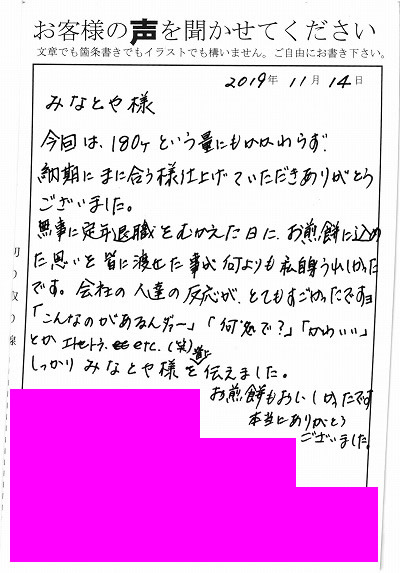 お客様の声を聞かせてください
文章でも箇条書きでもイラストでも構いません。ご自由にお書き下さい。
2019年 11月 14日
みなとや様
今回は、180ヶという量にもかかわらず、
納期にまに合う様仕上げていただきありがとう
ございました。
無事に定年退職をむかえた日に、お煎餅に込め
た思いを皆に渡せた事が何よりも私自身うれしかった
です。会社の人達の反応が、とてもすごかったですヨ
「こんなのがあるんだー」「何処で?」「かわいい」
とか エトセトラ. etc. (笑)
しっかり みなとや様を宣伝えました。
お煎餅もおいしかったです
本当にありがとう
ございました。
切り取り線